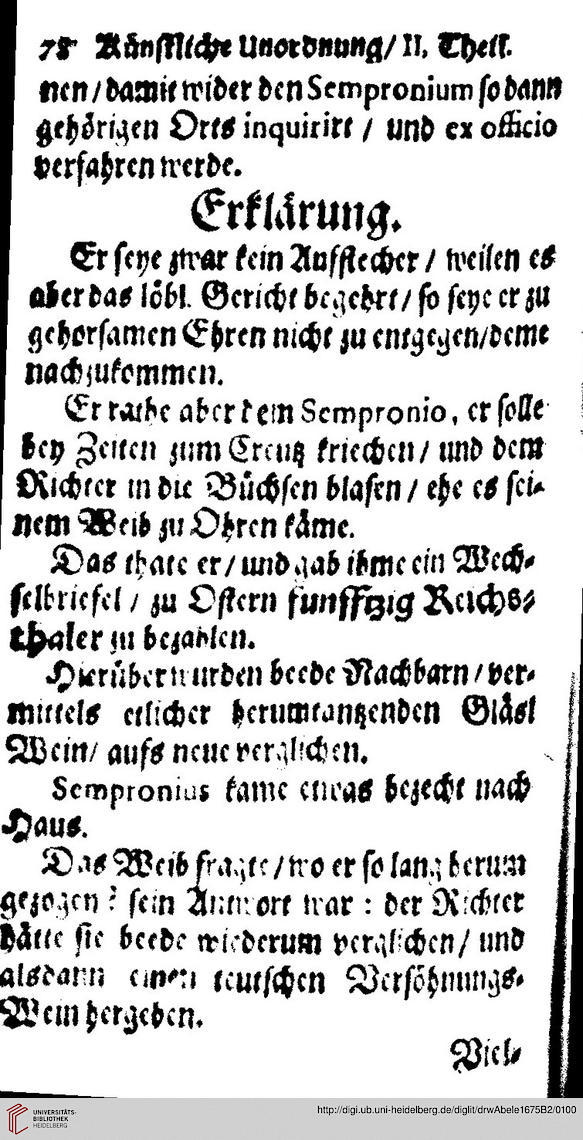 78 Künstliche Unordnung/ II. Theil.
nen / damit wider den Sempronium so dann
gehörigen Orts inquirirt / und ex officio
verfahren werde.
Erklärung.
Er seye zwar kein Aufstecher / weilen es
aber das löbl. Gericht begehrt / so seye er zu
gehorsamen Ehren nicht zu entgegen/deme
nachzukommen.
Er rathe aber dem Sempronio, er solle
bey Zeiten zum Creutz kriechen / und dem
Richter in die Büchsen blasen / ehe es sei-
nem Weib zu Ohren käme.
Das thate er / und gab ihme ein Wech-
selbriefel / zu Ostern funfftzig Reichs-
thaler zu bezahlen.
Hierüber wurden beede Nachbarn / ver-
mittels etlicher herumtantzenden Gläsl
Wein/ aufs neue verglichen.
Sempronius kame etwas bezecht nach
Haus.
Das Weib fragte / wo er so lang herum
gezogen? sein Antwort war: der Richter
hätte sie beede wiederum verglichen / und
alsdann einen teutschen Versöhnungs-
Wein hergeben.
Viel-
UNIVERSITÄTS-
BIBLIOTHEK
HEIDELBERG
http://digi.ub.uni-heidelberg.de/diglit/drwAbele1675B2/0100